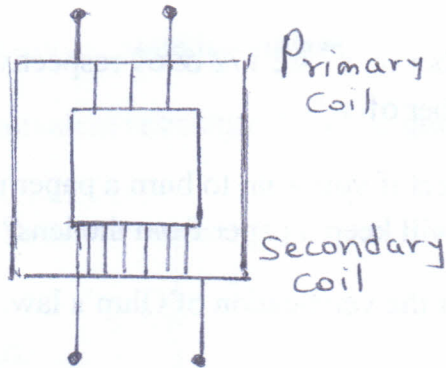 Primary
coil
Secondary
coil